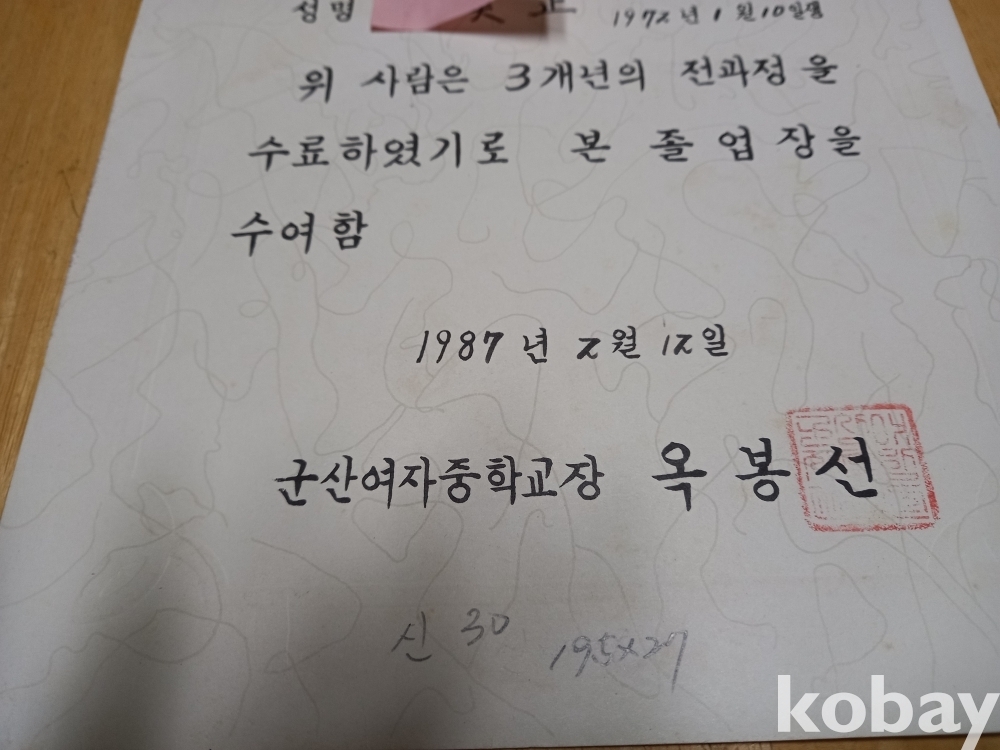 성명 1972년 1월 10일생
위 사람은 3개년의 전과정을
수료하였기로 본 졸업장을
수여함
1987년 2월 12일
군산여자중학교장 옥봉선
신 30
19.5x27
kobay